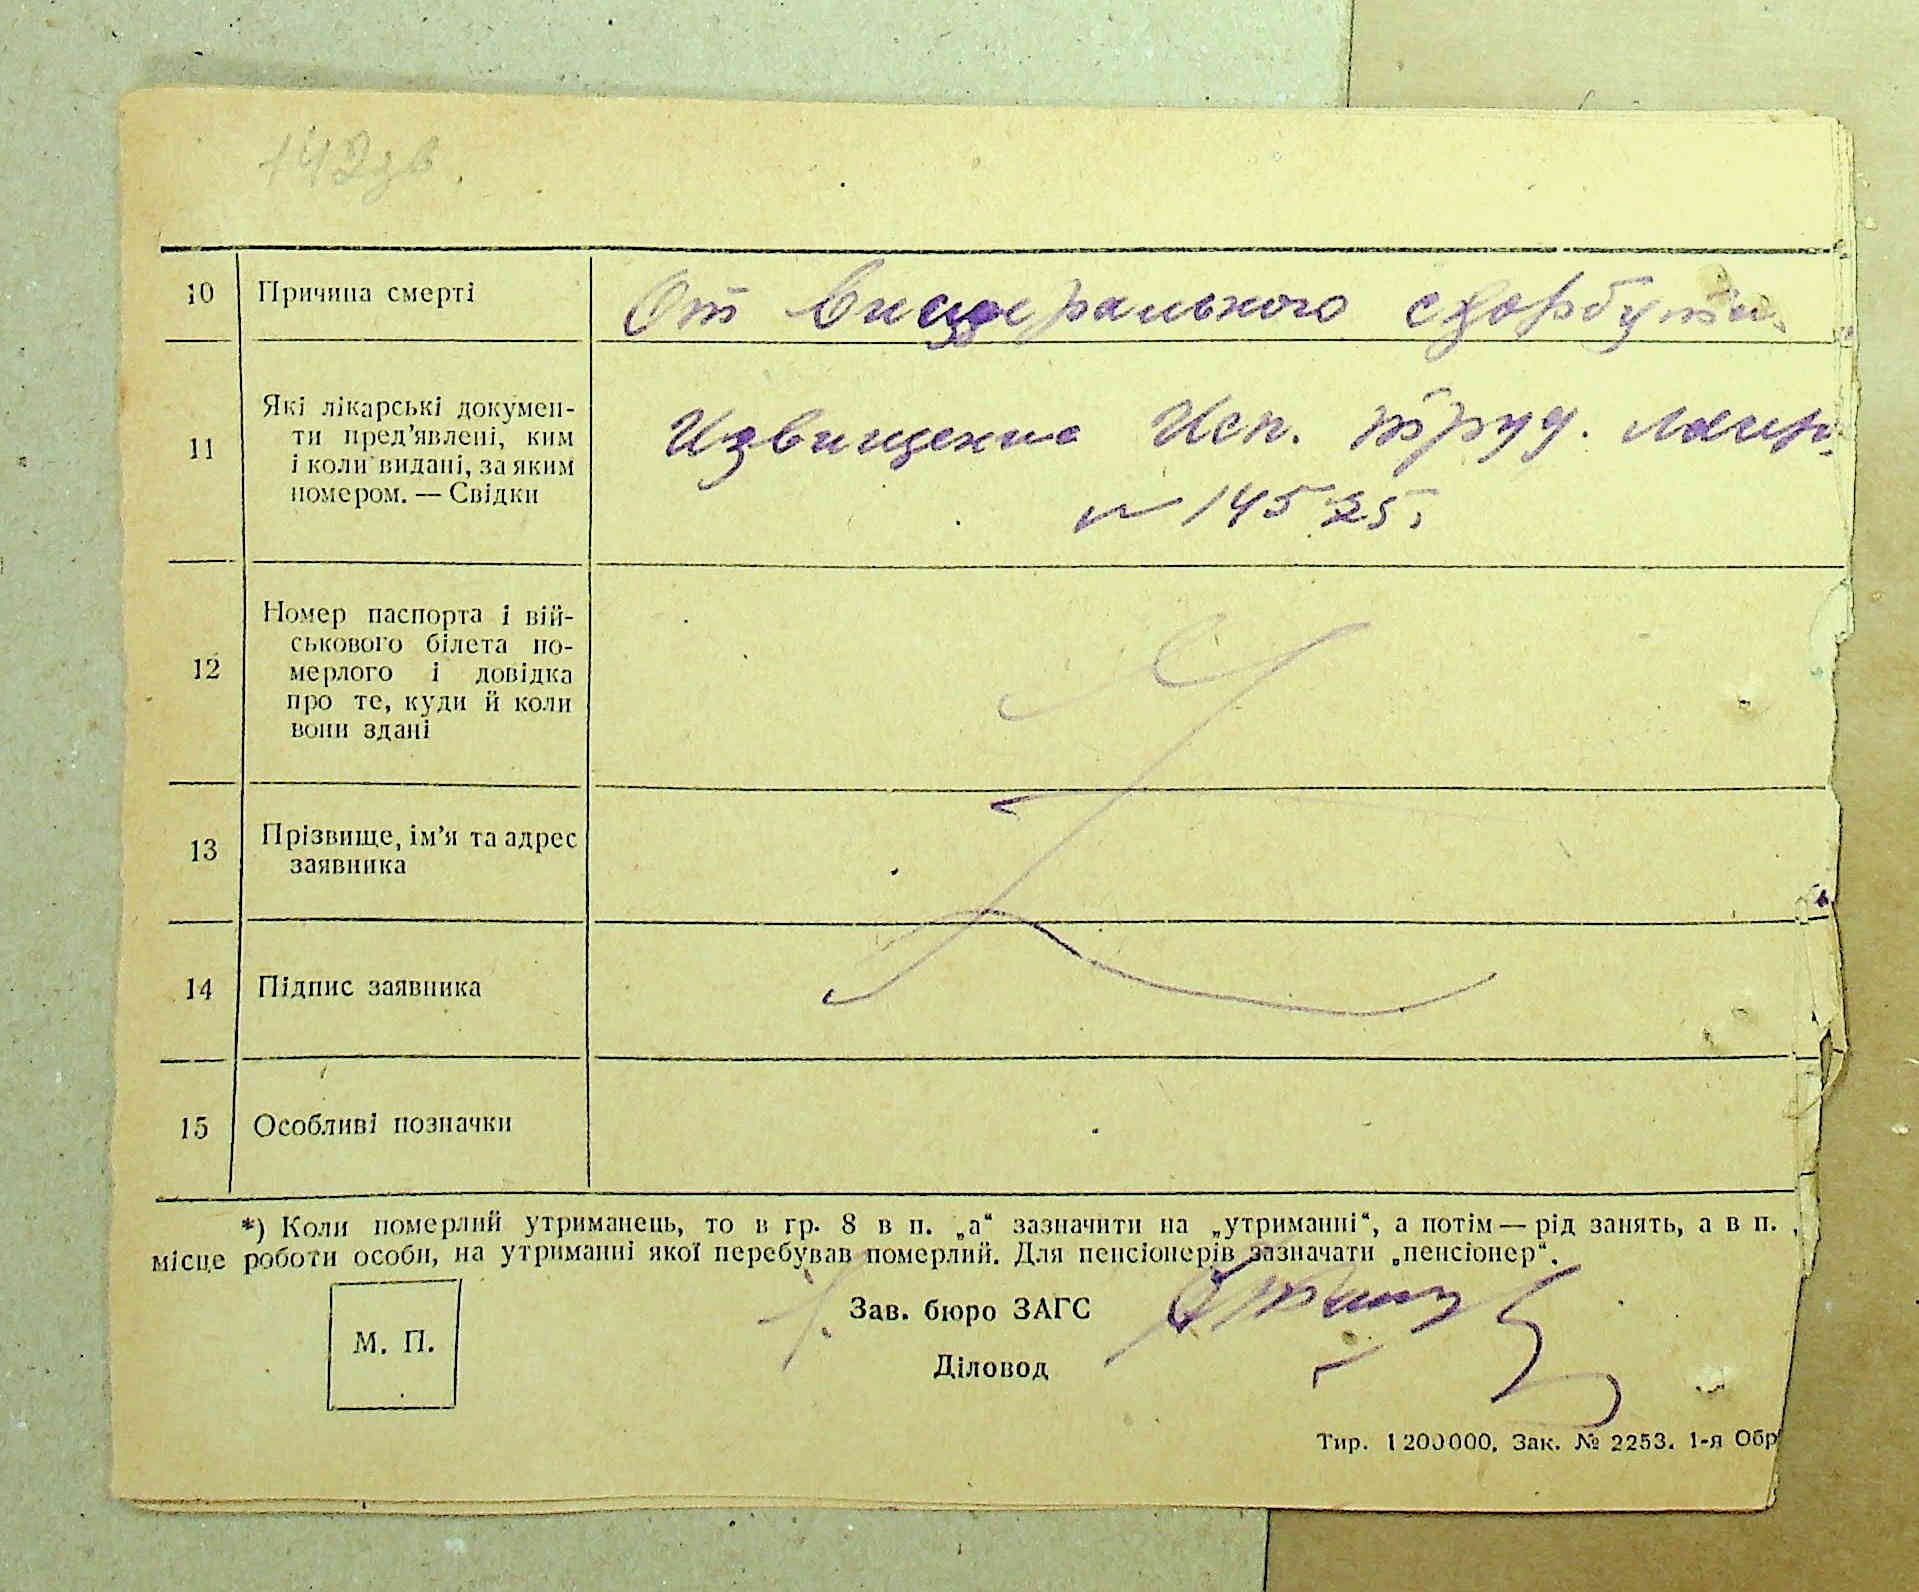 142зв.
10 Причина смерті От висцерального скорбута.
11 Які лікарські докумен-
ти пред’явлені, ким
і коли видані, за яким
номером. — Свідки
Извищение Исп. труд. лагер.
№ 14525.
12 Номер паспорта і вій-
ськового білета по-
мерлого і довідка
про те, куди й коли
вони здані
13 Прізвище, ім’я та адрес
заявника
14 Підпис заявника
15 Особливі позначки
*) Коли померлий утриманець, то в гр. 8 в п. „а“ зазначити на „утриманні“, а потім — рід занять, а в п. „
місце роботи особи, на утриманні якої перебував померлий. Для пенсіонерів зазначати „пенсіонер“.
М. П.
Зав. бюро ЗАГС
Діловод
Тир. 1200000. Зак. № 2253. 1-я Обр